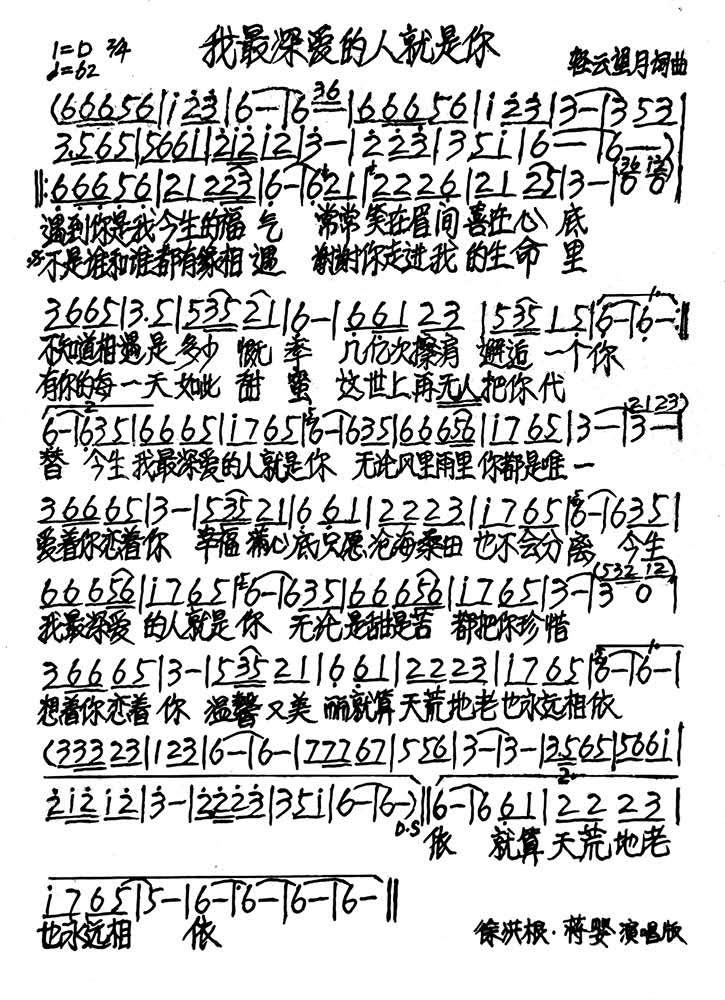 我最深爱的人就是你
1=D 2/4
♩=62
轻云望月词曲
(66656|i 23|6-|6 36|66656|i 23|3-|3 53|
3.565|5661|2i2i2|3-|2223|35i|6-|6-)
‖:66656|21223|6-|621|22226|2125|3-|0 0|
遇到你是我今生的福气 常常笑在眉间喜在心底
不是谁和谁都有缘相遇 谢谢你走进我的生命里
3665|3.5|53521|6-|66123|53515|6-|6-:‖
不知道相遇是多少慨率 几亿次擦肩邂逅一个你
有你的每一天如此甜蜜 这世上再无人把你代
6-|635|6665|i765|6-|635|66656|i765|3-|3-|
替 今生我最深爱的人就是你 无论风里雨里你都是唯一
36665|3-|53521|661|2223|i765|6-|635|
爱着你恋着你 幸福满心底只愿沧海桑田也不会分离 今生
66656|i765|6-|635|66656|i765|3-|3 0|
我最深爱的人就是你 无论是甜是苦都把你珍惜
36665|3-|53521|661|2223|i765|6-|6-|
想着你恋着你 温馨又美丽就算天荒地老也永远相依
(33323|123|6-|6-|77767|556|3-|3-|3.565|566i|
2i2i2|3-|2223|35i|6-|6-)‖6-|661|2223|
D.S
依 就算天荒地老
i765|5-|6-|6-|6-|6-‖
也永远相 依
徐洪根·蒋婴演唱版